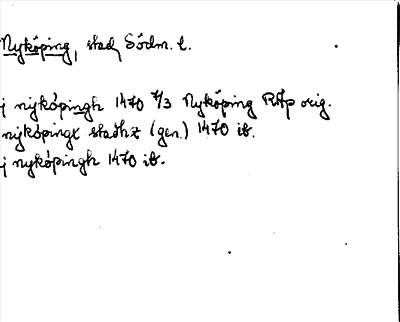 Nyköping, stad, Södm. l.
j nyköpingh 1470 7/3 Nyköping RAp orig.
nyköpingx stadhz (gen.) 1470 ib.
j nyköpingh 1470 ib.